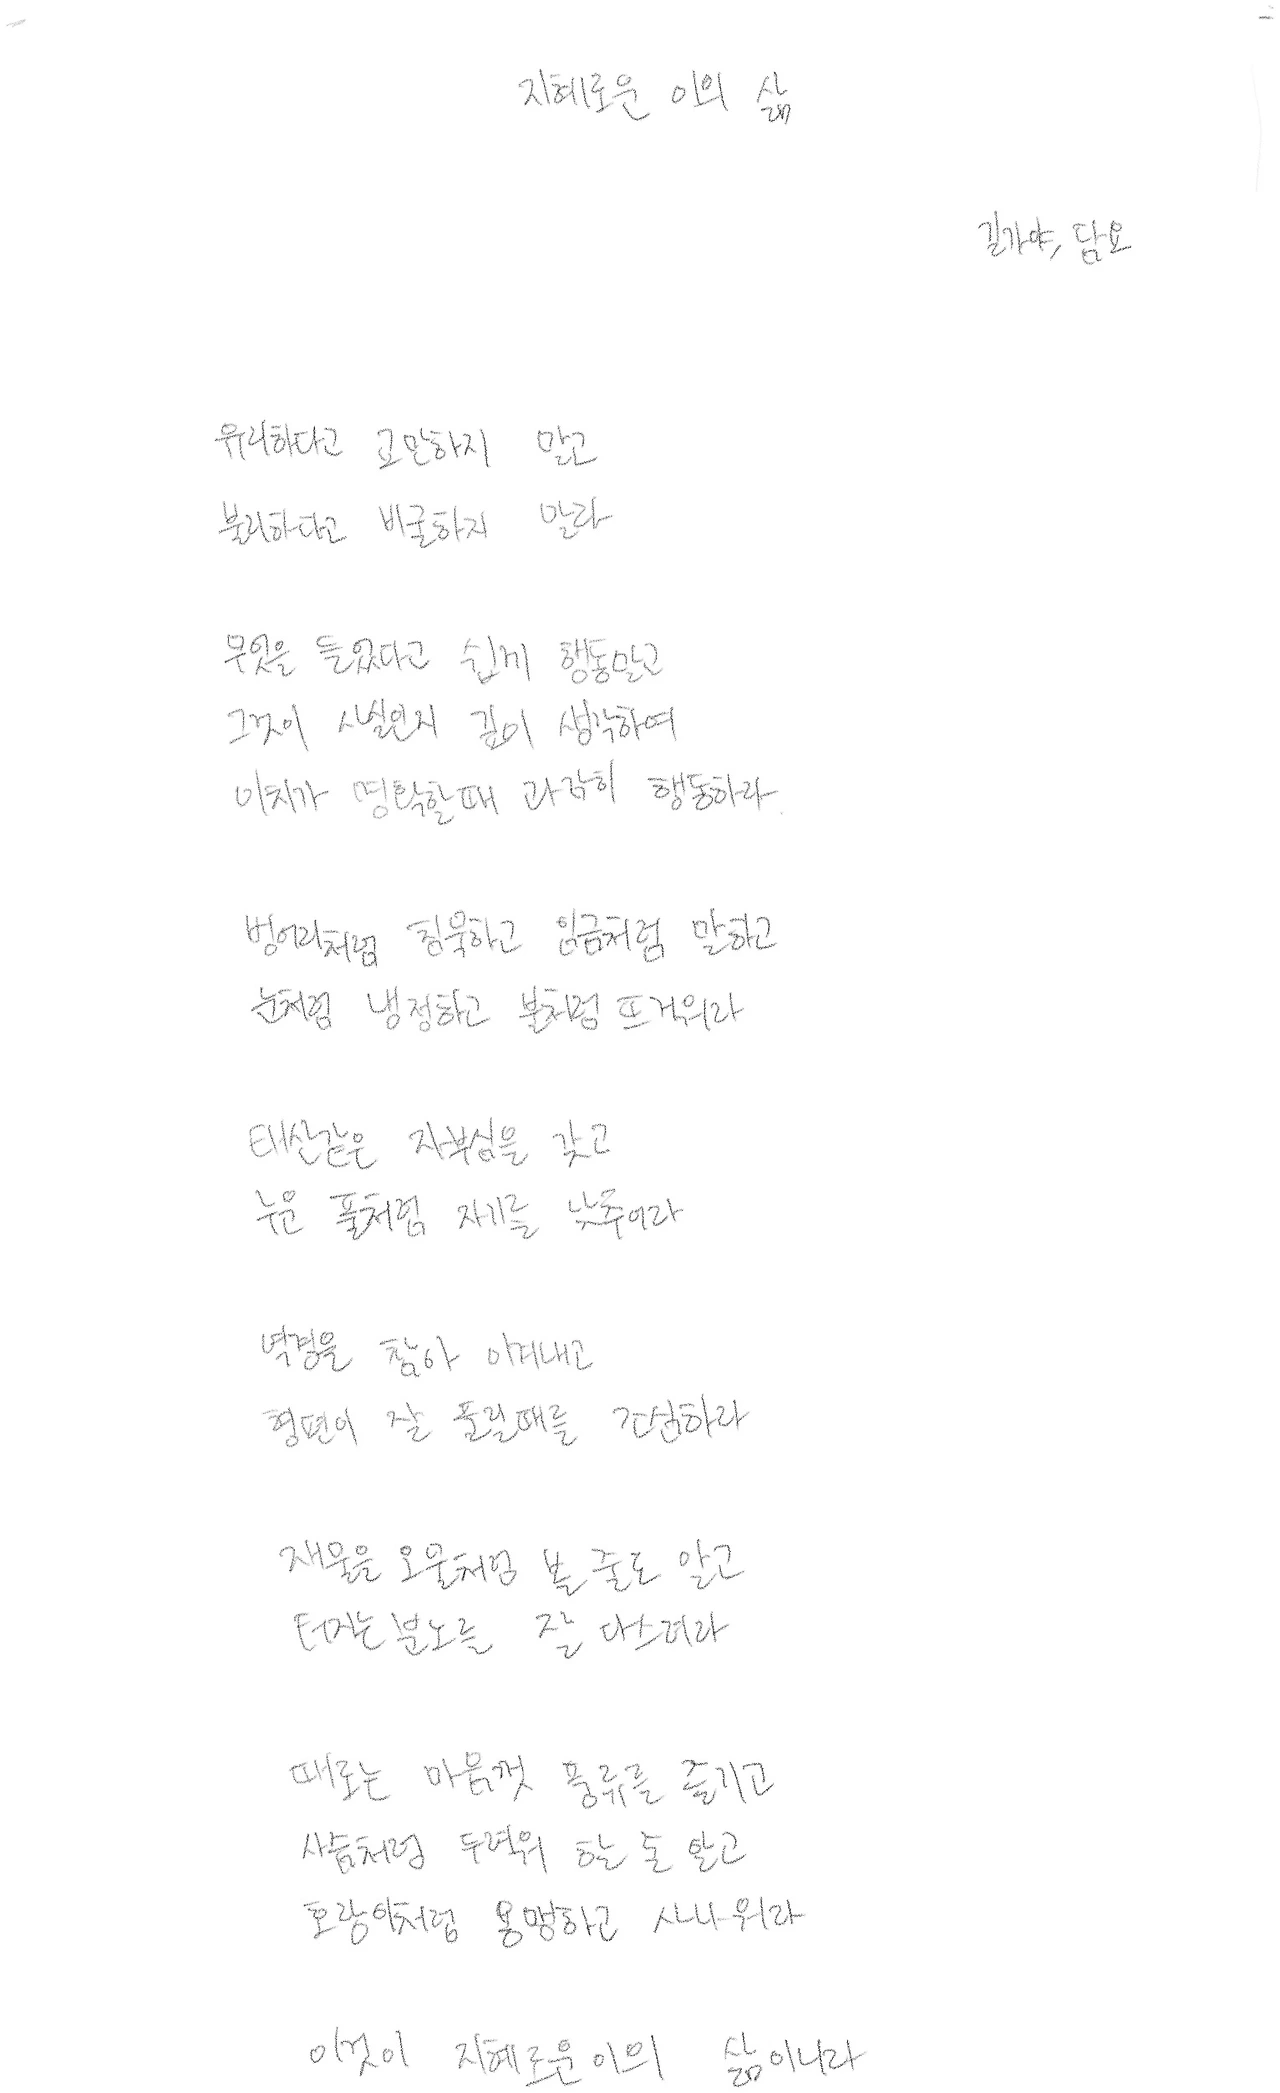 지혜로운 이의 삶
길가야, 담요
유리하다고 교만하지 말고
불리하다고 비굴하지 말라
무엇을 들었다고 쉽게 행동말고
그것이 사실인지 깊이 생각하여
이치가 명확할때 과감히 행동하라
벙어리처럼 침묵하고 임금처럼 말하고
눈처럼 냉정하고 불처럼 뜨거워라
태산같은 자부심을 갖고
누운 풀처럼 자기를 낮추어라
역경을 참아 이겨내고
형편이 잘 풀릴때를 조심하라
재물을 오물처럼 볼 줄도 알고
터지는 분노를 잘 다스려라
때로는 마음껏 풍류를 즐기고
사슴처럼 두려워 할 줄 알고
호랑이처럼 용맹하고 사나워라
이것이 지혜로운이의 삶이니라